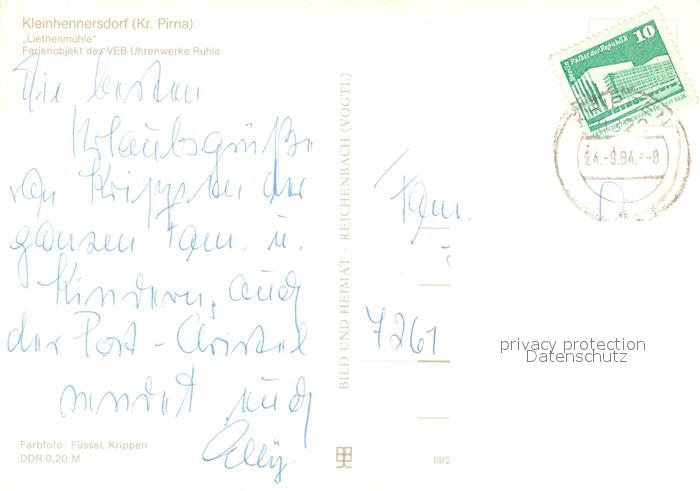 Kleinhennersdorf (Kr. Pirna)
„Liethenmühle"
Ferienobjekt des VEB Uhrenwerke Ruhla
Die besten
Urlaubsgrüße
von Krippen der
ganzen Fam. u.
Kindern, auch
der Post-Christel
sendet euch
Elly.
Farbfoto: Füssel, Krippen
DDR 0,20 M
BILD UND HEIMAT · REICHENBACH (VOGTL)
III/2
Berlin Palast der Republik
10
24.-9.84.
Fam.
7261
privacy protection
Datenschutz